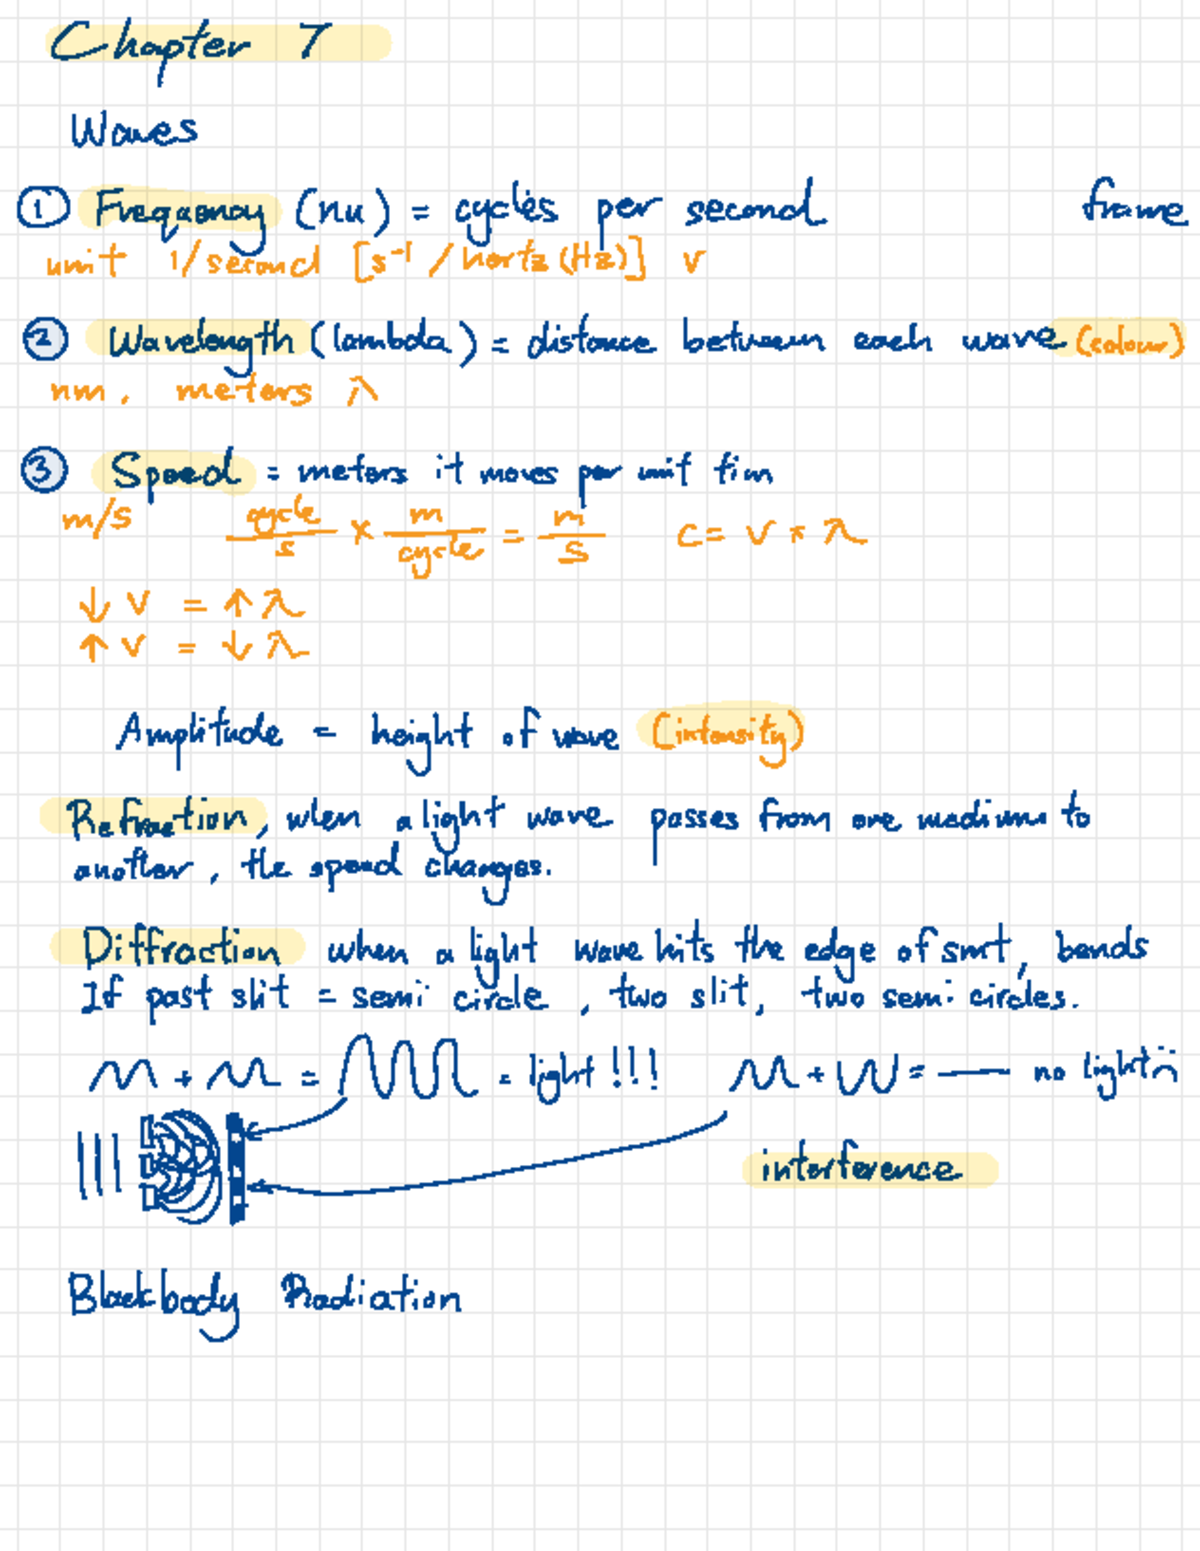 Chapter 7
Waves
① Frequency (nu) = cycles per second frame
unit 1/second [s⁻¹ / hertz (Hz)] ν
② Wavelength (lambda) = distance between each wave (colour)
nm, meters λ
③ Speed = meters it moves per unit tim
m/s cycle/s × m/cycle = m/s c = ν * λ
↓ ν = ↑ λ
↑ ν = ↓ λ
Amplitude = height of wave (intensity)
Refraction, when a light wave passes from one medium to
another, the speed changes.
Diffraction when a light wave hits the edge of smt, bends
If past slit = semi circle, two slit, two semi circles.
+ = = light!!! + = — no light
interference
Blackbody Radiation